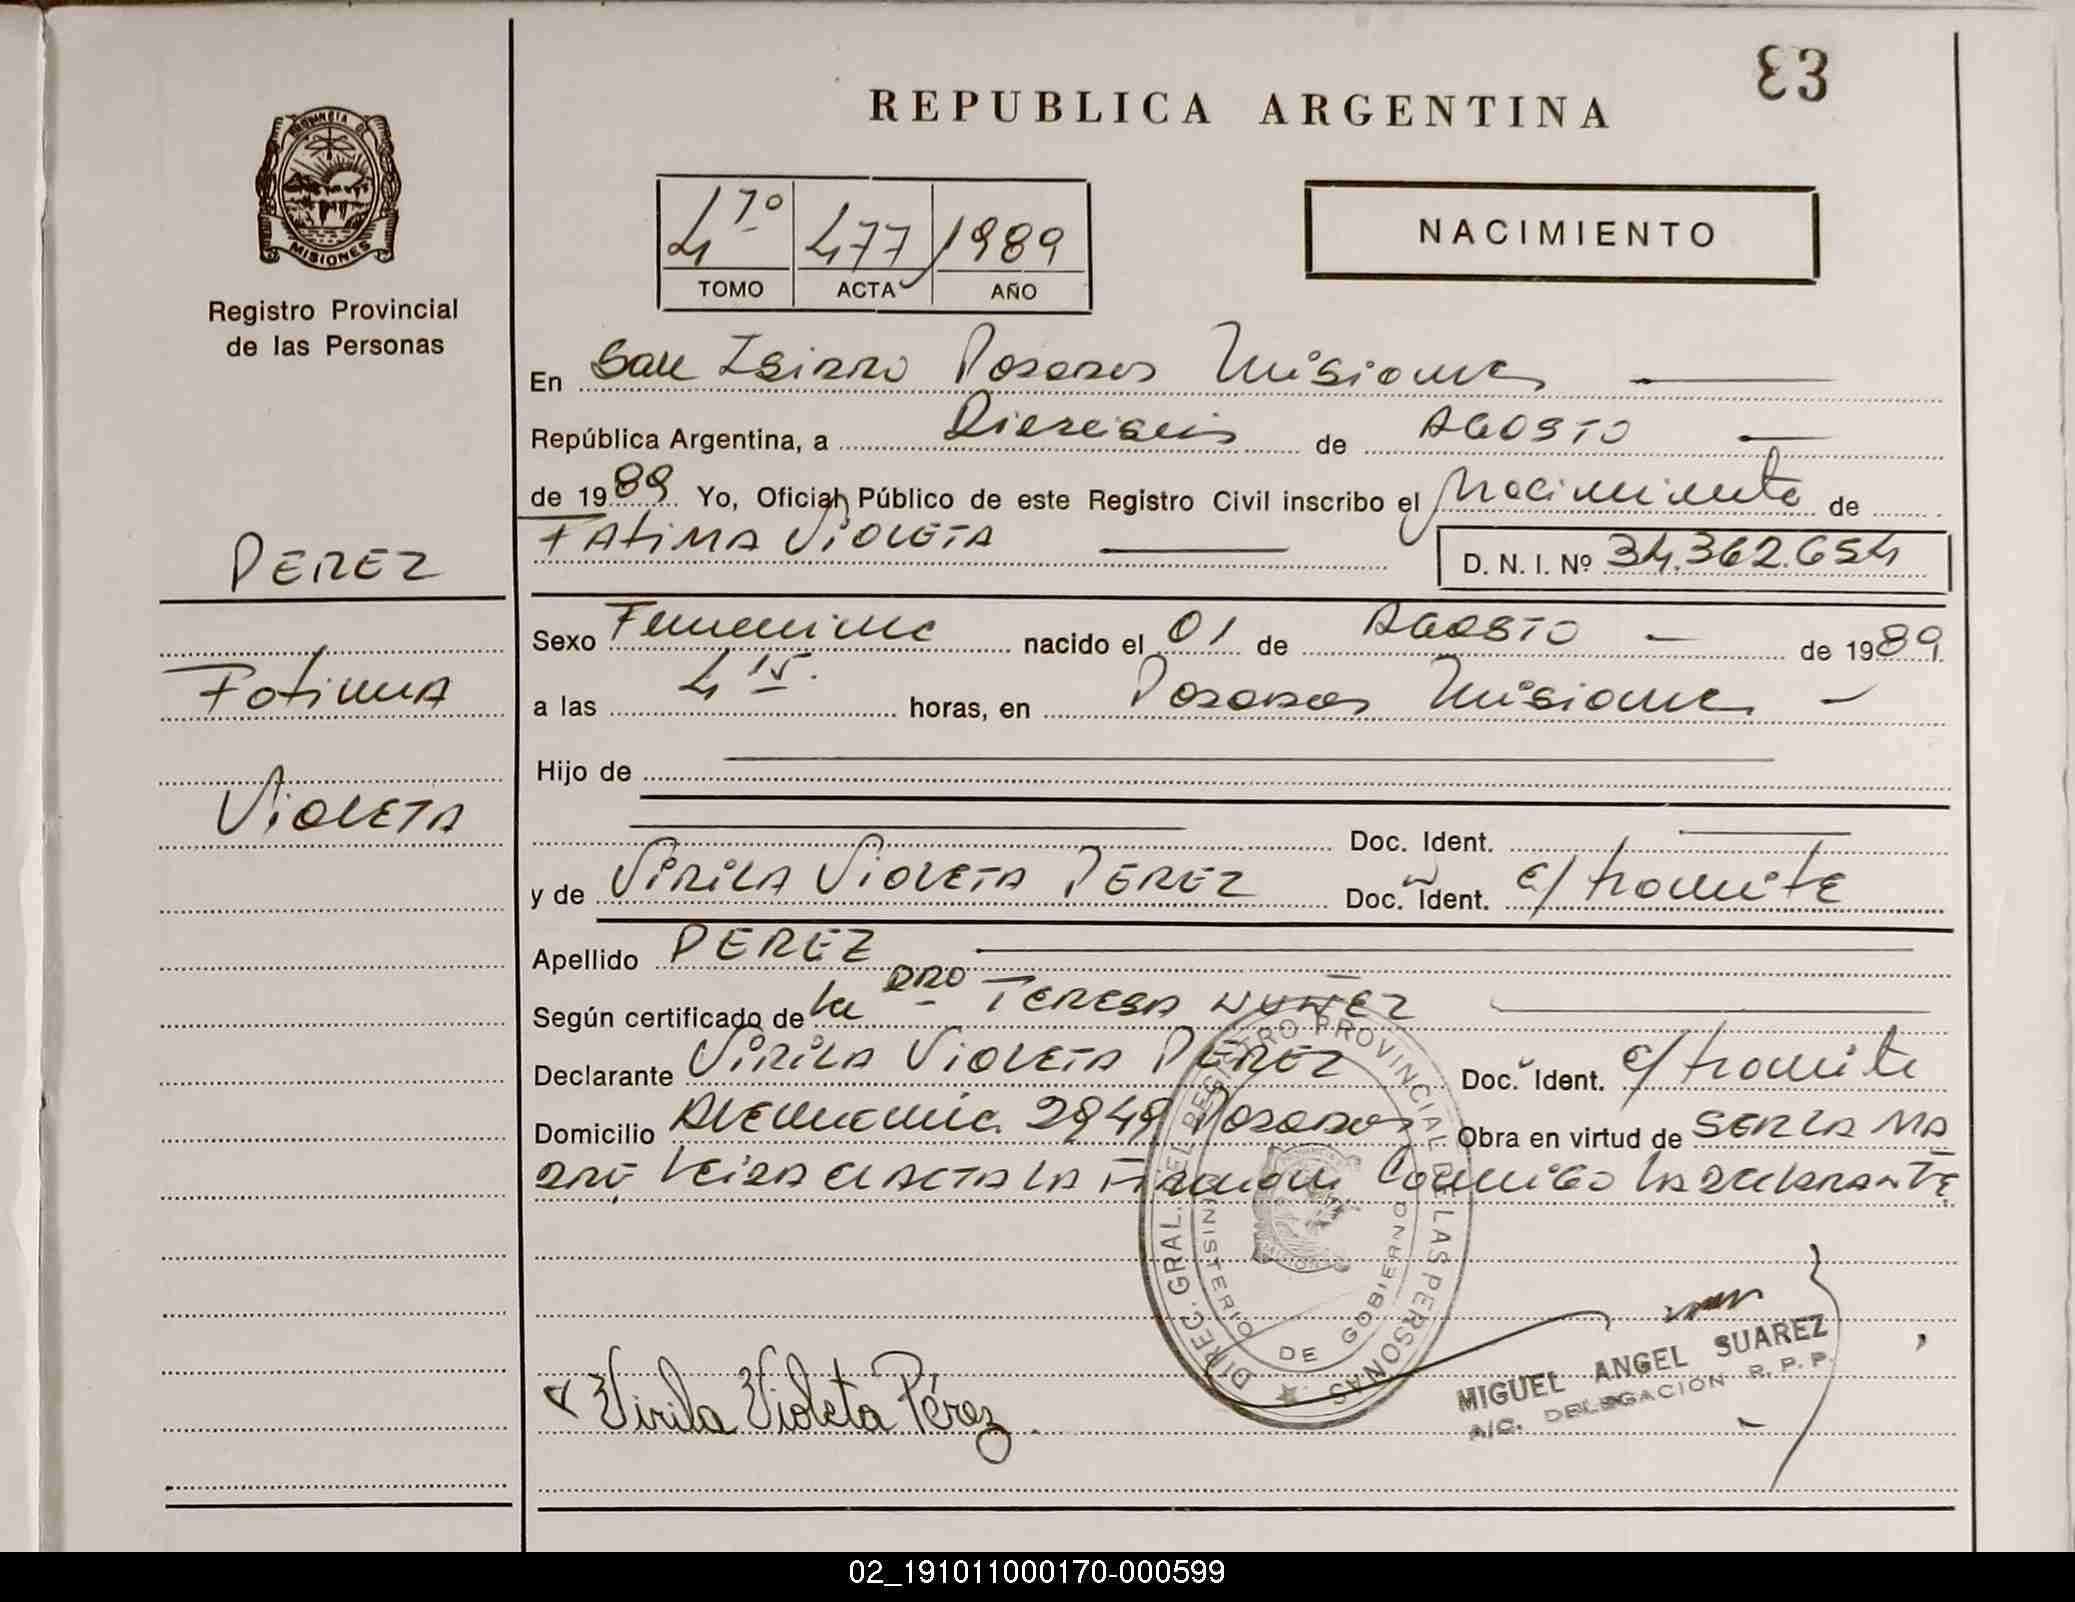 83
REPUBLICA ARGENTINA
PROVINCIA DE
MISIONES
Registro Provincial
de las Personas
4 1º 477 1989
TOMO ACTA AÑO
NACIMIENTO
En San Isidro Posadas Misiones
República Argentina, a Dieciseis de AGOSTO
de 1989 Yo, Oficial Público de este Registro Civil inscribo el Nacimiento de
FATIMA VIOLETA
D. N. I. Nº 34.362.654
PEREZ
Fatima
VIOLETA
Sexo Femenino nacido el 01 de AGOSTO de 1989
a las 4 15. horas, en Posadas Misiones
Hijo de
Doc. Ident.
y de VIRILA VIOLETA PEREZ Doc. Ident. e/ tramite
Apellido PEREZ
Según certificado de la DRA TERESA NUÑEZ
Declarante VIRILA VIOLETA PEREZ Doc. Ident. e/ tramite
Domicilio Alemania 2949 Posadas Obra en virtud de SER LA MA
DRE Leida el ACTA LA Firman Conmigo LA DECLARANTE
DIREC. GRAL. DEL REGISTRO PROVINCIAL DE LAS PERSONAS
MINISTERIO DE GOBIERNO
Virila Violeta Pérez
MIGUEL ANGEL SUAREZ
A/C. DELEGACION R. P. P.
02_191011000170-000599